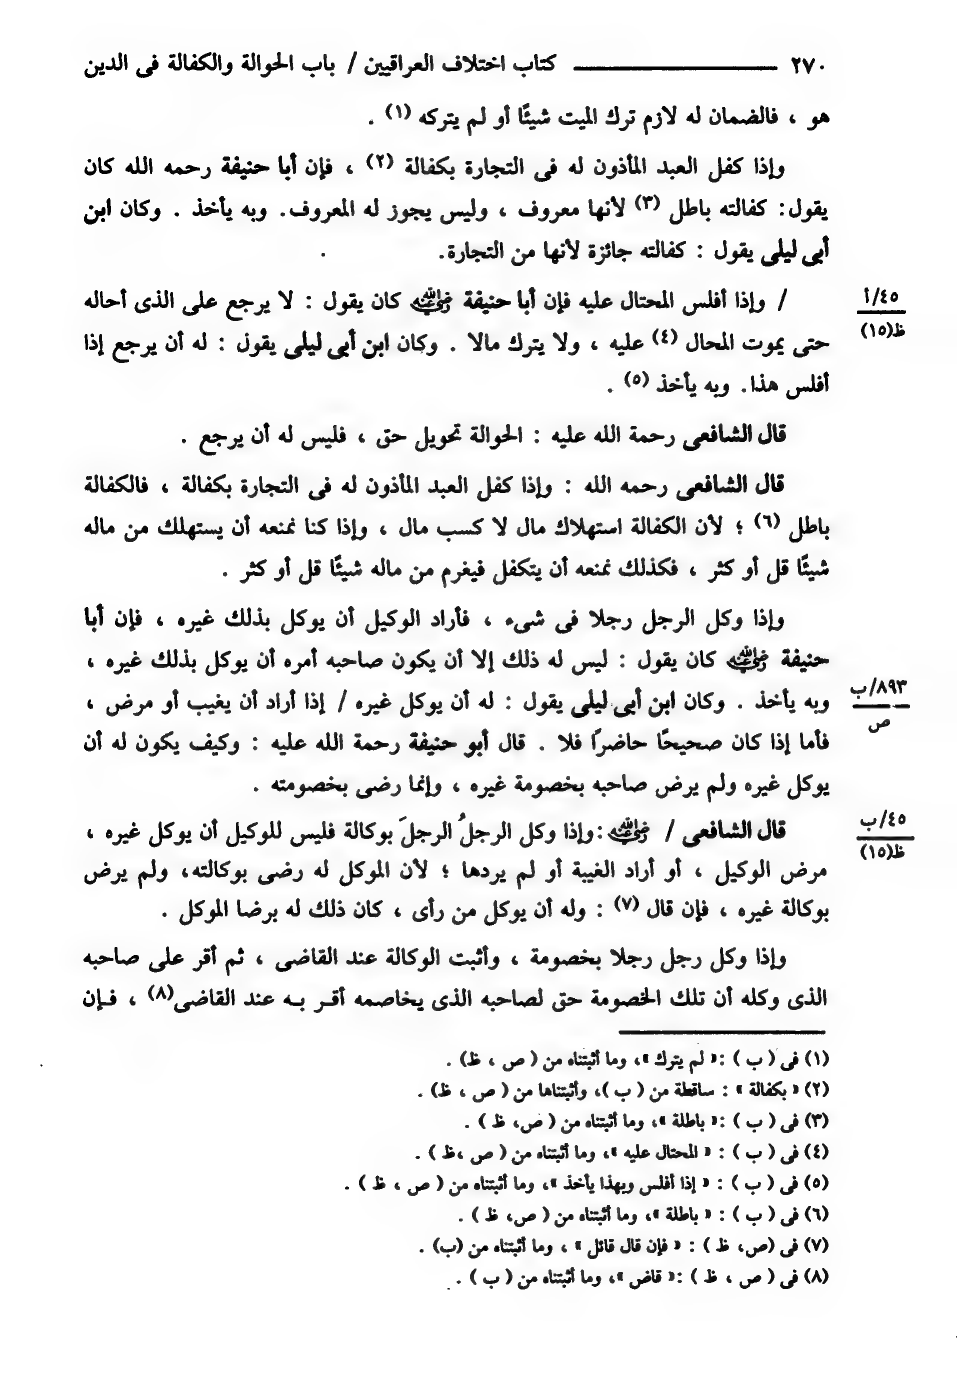 ٢٧٠ ــــــــــ كتاب اختلاف العراقيين / باب الحوالة والكفالة فى الدين
هو ، فالضمان له لازم ترك الميت شيئًا أو لم يتركه (١) .
وإذا كفل العبد المأذون له فى التجارة بكفالة (٢) ، فإن أبا حنيفة رحمه الله كان
يقول: كفالته باطل (٣) لأنها معروف ، وليس يجوز له المعروف. وبه يأخذ . وكان ابن
أبى ليلى يقول : كفالته جائزة لأنها من التجارة.
/ وإذا أفلس المحتال عليه فإن أبا حنيفة رضي الله عنه كان يقول : لا يرجع على الذى أحاله
٤٥/أ
ظ(١٥)
حتى يموت المحال (٤) عليه ، ولا يترك مالا . وكان ابن أبى ليلى يقول : له أن يرجع إذا
أفلس هذا. وبه يأخذ (٥) .
قال الشافعى رحمة الله عليه : الحوالة تحويل حق ، فليس له أن يرجع .
قال الشافعى رحمه الله : وإذا كفل العبد المأذون له فى التجارة بكفالة ، فالكفالة
باطل (٦) ؛ لأن الكفالة استهلاك مال لا كسب مال ، وإذا كنا نمنعه أن يستهلك من ماله
شيئًا قل أو كثر ، فكذلك نمنعه أن يتكفل فيغرم من ماله شيئًا قل أو كثر .
وإذا وكل الرجل رجلا فى شىء ، فأراد الوكيل أن يوكل بذلك غيره ، فإن أبا
حنيفة رضي الله عنه كان يقول : ليس له ذلك إلا أن يكون صاحبه أمره أن يوكل بذلك غيره ،
وبه يأخذ . وكان ابن أبى ليلى يقول : له أن يوكل غيره / إذا أراد أن يغيب أو مرض ،
٨٩٣/ب
ص
فأما إذا كان صحيحًا حاضرًا فلا . قال أبو حنيفة رحمة الله عليه : وكيف يكون له أن
يوكل غيره ولم يرض صاحبه بخصومة غيره ، وإنما رضى بخصومته .
قال الشافعى / رضي الله عنه :وإذا وكل الرجلُ الرجلَ بوكالة فليس للوكيل أن يوكل غيره ،
٤٥/ب
ظ(١٥)
مرض الوكيل ، أو أراد الغيبة أو لم يردها ؛ لأن الموكل له رضى بوكالته، ولم يرض
بوكالة غيره ، فإن قال (٧) : وله أن يوكل من رأى ، كان ذلك له برضا الموكل .
وإذا وكل رجل رجلا بخصومة ، وأثبت الوكالة عند القاضى ، ثم أقر على صاحبه
الذى وكله أن تلك الخصومة حق لصاحبه الذى يخاصمه أقـر بـه عند القاضى(٨) ، فـإن
(١) فى ( ب ) :« لم يترك »، وما أثبتناه من ( ص ، ظ) .
(٢) « بكفالة » : ساقطة من ( ب )، وأثبتناها من ( ص ، ظ) .
(٣) فى ( ب ) :« باطلة »، وما أثبتناه من ( ص، ظ ) .
(٤) فى ( ب ) : « المحتال عليه »، وما أثبتناه من ( ص ،ظ ) .
(٥) فى ( ب ) : « إذا أفلس وبهذا يأخذ »، وما أثبتناه من ( ص ، ظ ) .
(٦) فى ( ب ) : « باطلة »، وما أثبتناه من ( ص، ظ ) .
(٧) فى (ص، ظ ) : « فإن قال قائل » ، وما أثبتناه من (ب) .
(٨) فى ( ص ، ظ ) :« قاض »، وما أثبتناه من ( ب ) .